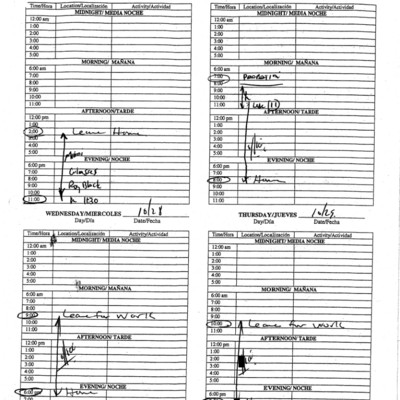 Time/Hora Location/Localización Activity/Actividad
MIDNIGHT/ MEDIA NOCHE
12:00 am
1:00
2:00
3:00
4:00
5:00
MORNING/ MAÑANA
6:00 am
7:00
8:00
9:00
10:00
11:00
AFTERNOON/TARDE
12:00 pm
1:00
2:00 Leave Home
3:00
4:00
5:00
EVENING/ NOCHE
6:00 pm
7:00 Glasses
8:00
9:00 Ray Block
10:00
11:00 11:30
WEDNESDAY/MIERCOLES 10/28
Day/Día Date/Fecha
Time/Hora Location/Localización Activity/Actividad
MIDNIGHT/ MEDIA NOCHE
12:00 am
1:00
2:00
3:00
4:00
5:00
MORNING/ MAÑANA
6:00 am
7:00 PROBATION
8:00
9:00
10:00
11:00
AFTERNOON/TARDE
12:00 pm
1:00
2:00
3:00
4:00
5:00
EVENING/ NOCHE
6:00 pm
7:00
8:00 Home
9:00
10:00
11:00
THURSDAY/JUEVES 10/29
Day/Día Date/Fecha
Time/Hora Location/Localización Activity/Actividad
MIDNIGHT/ MEDIA NOCHE
12:00 am
1:00
2:00
3:00
4:00
5:00
MORNING/ MAÑANA
6:00 am
7:00
8:00
9:00 Leave for Work
10:00
11:00
AFTERNOON/TARDE
12:00 pm
1:00
2:00
3:00
4:00
5:00
EVENING/ NOCHE
6:00 pm Home
Time/Hora Location/Localización Activity/Actividad
MIDNIGHT/ MEDIA NOCHE
12:00 am
1:00
2:00
3:00
4:00
5:00
MORNING/ MAÑANA
6:00 am
7:00
8:00
9:00
10:00 Leave for Work
11:00
AFTERNOON/TARDE
12:00 pm
1:00
2:00
3:00
4:00
5:00
EVENING/ NOCHE
6:00 pm
Home